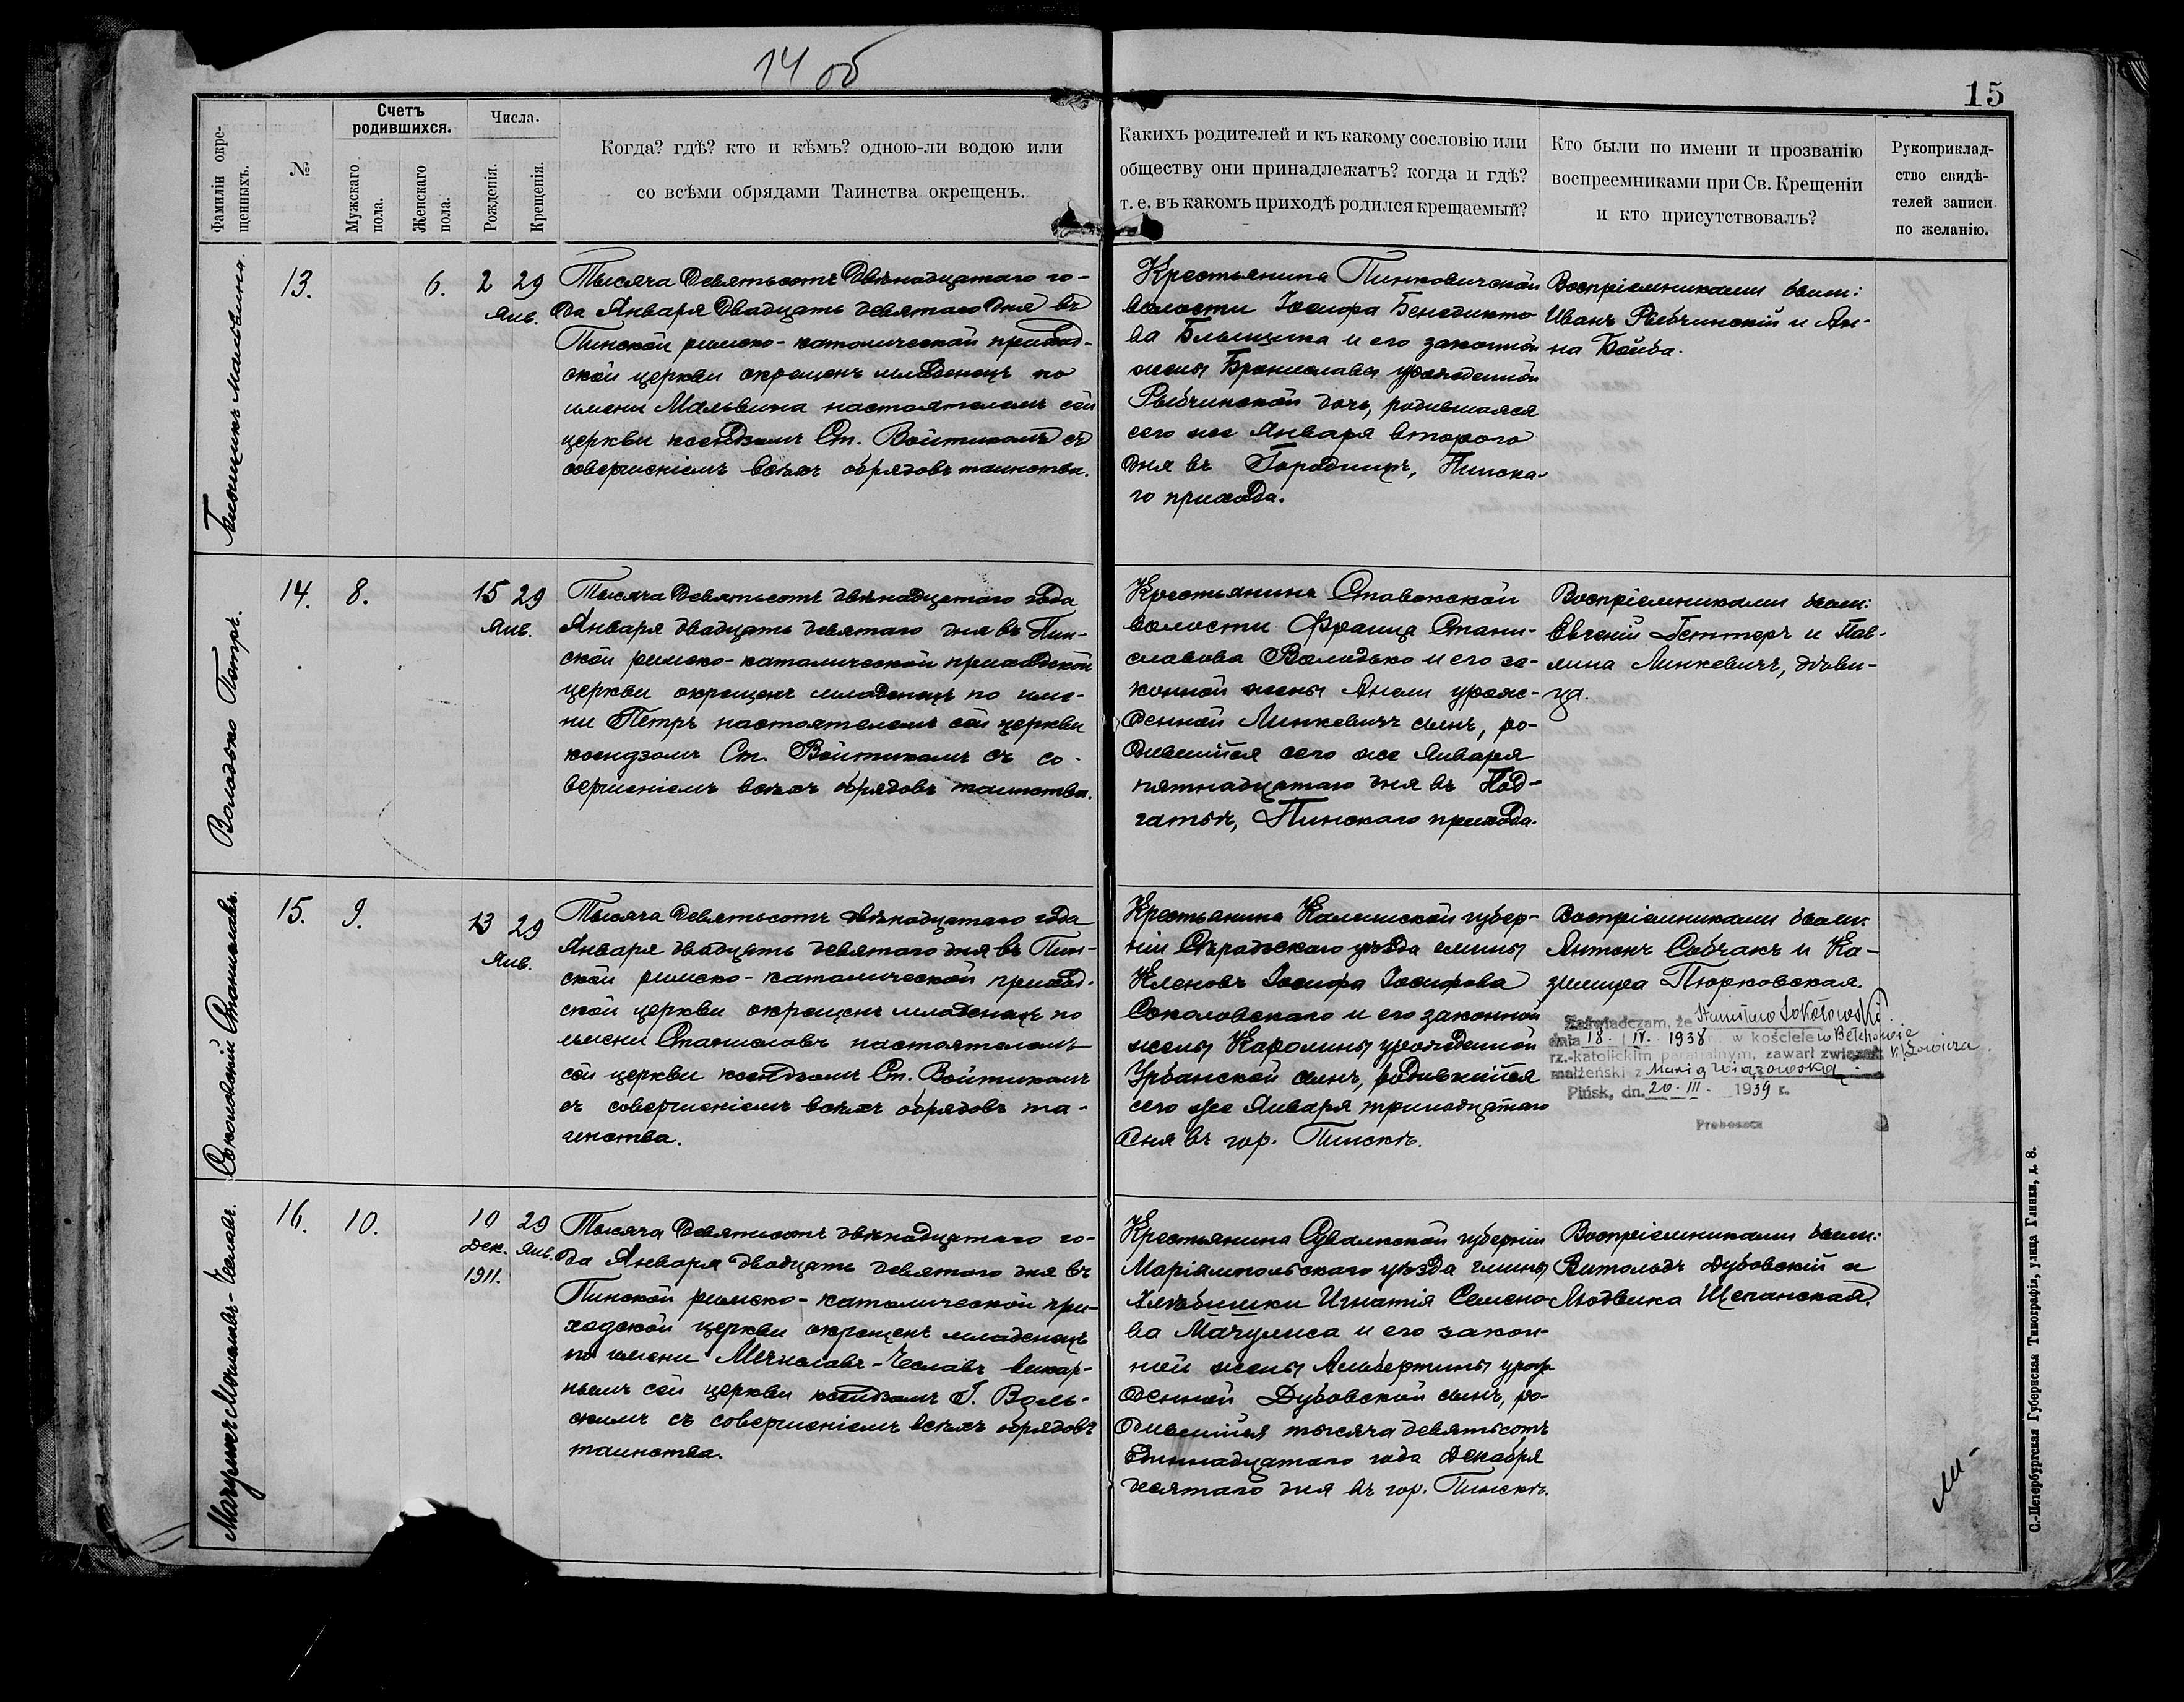 14 об
15
Фамиліи окре-
щенныхъ.
№
Счетъ
родившихся.
Мужскаго
пола.
Женскаго
пола.
Числа.
Рожденія.
Крещенія.
Когда? гдѣ? кто и кѣмъ? одною-ли водою или
со всѣми обрядами Таинства окрещенъ.
Какихъ родителей и къ какому сословію или
обществу они принадлежатъ? когда и гдѣ?
т. е. въ какомъ приходѣ родился крещаемый?
Кто были по имени и прозванію
воспреемниками при Св. Крещеніи
и кто присутствовалъ?
Рукоприклад-
ство свидѣ-
телей записи
по желанію.
Мальвина.
13.
6.
2 29
Янв.
Тысяча девятьсотъ двѣнадцатаго го-
да Января двадцать девятаго дня въ
Пинской римско-католической приход-
ской церкви окрещенъ младенецъ по
имени Мальвина настоятелемъ сей
церкви ксендзомъ Ст. Войтикомъ съ
совершеніемъ всѣхъ обрядовъ таинства.
Крестьянина Пинковичской
волости Іосифа Бенедикто-
ва и его законной
жены Брониславы урожденной
Рыбчинской дочь, родившаяся
сего же Января второго
дня въ Городищѣ, Пинска-
го прихода.
Воспріемниками были:
Иванъ Рыбчинскій и Ан-
на Бойба.
Володько Петръ.
14.
8.
15 29
Янв.
Тысяча девятьсотъ двѣнадцатаго года
Января двадцать девятаго дня въ Пин-
ской римско-католической приходской
церкви окрещенъ младенецъ по име-
ни Петръ настоятелемъ сей церкви
ксендзомъ Ст. Войтикомъ съ со-
вершеніемъ всѣхъ обрядовъ таинства.
Крестьянина Ставокской
волости Франца Стани-
славова Володько и его за-
конной жены Анели урож-
денной Линкевичъ сынъ, ро-
дившійся сего же Января
пятнадцатаго дня въ Под-
гатьѣ, Пинскаго прихода.
Воспріемниками были:
Евгеній Геттеръ и Пав-
лина Линкевичъ, дѣви-
ца.
Соколовскій Станиславъ.
15.
9.
13 29
Янв.
Тысяча девятьсотъ двѣнадцатаго года
Января двадцать девятаго дня въ Пин-
ской римско-католической приход-
ской церкви окрещенъ младенецъ по
имени Станиславъ настоятелемъ
сей церкви ксендзомъ Ст. Войтикомъ
съ совершеніемъ всѣхъ обрядовъ та-
инства.
Крестьянина Калишской губер-
ніи Сѣрадзскаго уѣзда гмины
Кленовъ Іосифа Іосифова
Соколовскаго и его законной
жены Каролины урожденной
Урбанской сынъ, родившійся
сего же Января тринадцатаго
дня въ гор. Пинскѣ.
Воспріемниками были:
Антонъ Собчакъ и Ка-
зимира Пюрковская.
Zaświadczam, że Stanisław Sokołowski
dnia 18. IV. 1938 r. w kościele w Bełchowie
rz.-katolickim parafialnym, zawarł związek k/Łowicza
małżeński z Marią Wiązowską.
Pińsk, dn. 20. III. 1939 r.
Proboszcz
Мачулисъ Мечиславъ-Чеславъ.
16.
10.
10 29
Дек. Янв.
1911.
Тысяча девятьсотъ двѣнадцатаго го-
да Января двадцать девятаго дня въ
Пинской римско-католической при-
ходской церкви окрещенъ младенецъ
по имени Мечиславъ-Чеславъ викар-
нымъ сей церкви ксендзомъ І. Воль-
скимъ съ совершеніемъ всѣхъ обрядовъ
таинства.
Крестьянина Сувалкской губерніи
Маріампольскаго уѣзда гмины
Хлѣбишки Игнатія Семено-
ва Мачулиса и его закон-
ной жены Альбертины урож-
денной Дубовской сынъ, ро-
дившійся тысяча девятьсотъ
одиннадцатаго года Декабря
десятаго дня въ гор. Пинскѣ.
Воспріемниками были:
Витольдъ Дубовскій и
Людвика Щепанская.
С.-Петербургская Губернская Типографія, улица Глинки, д. 8.